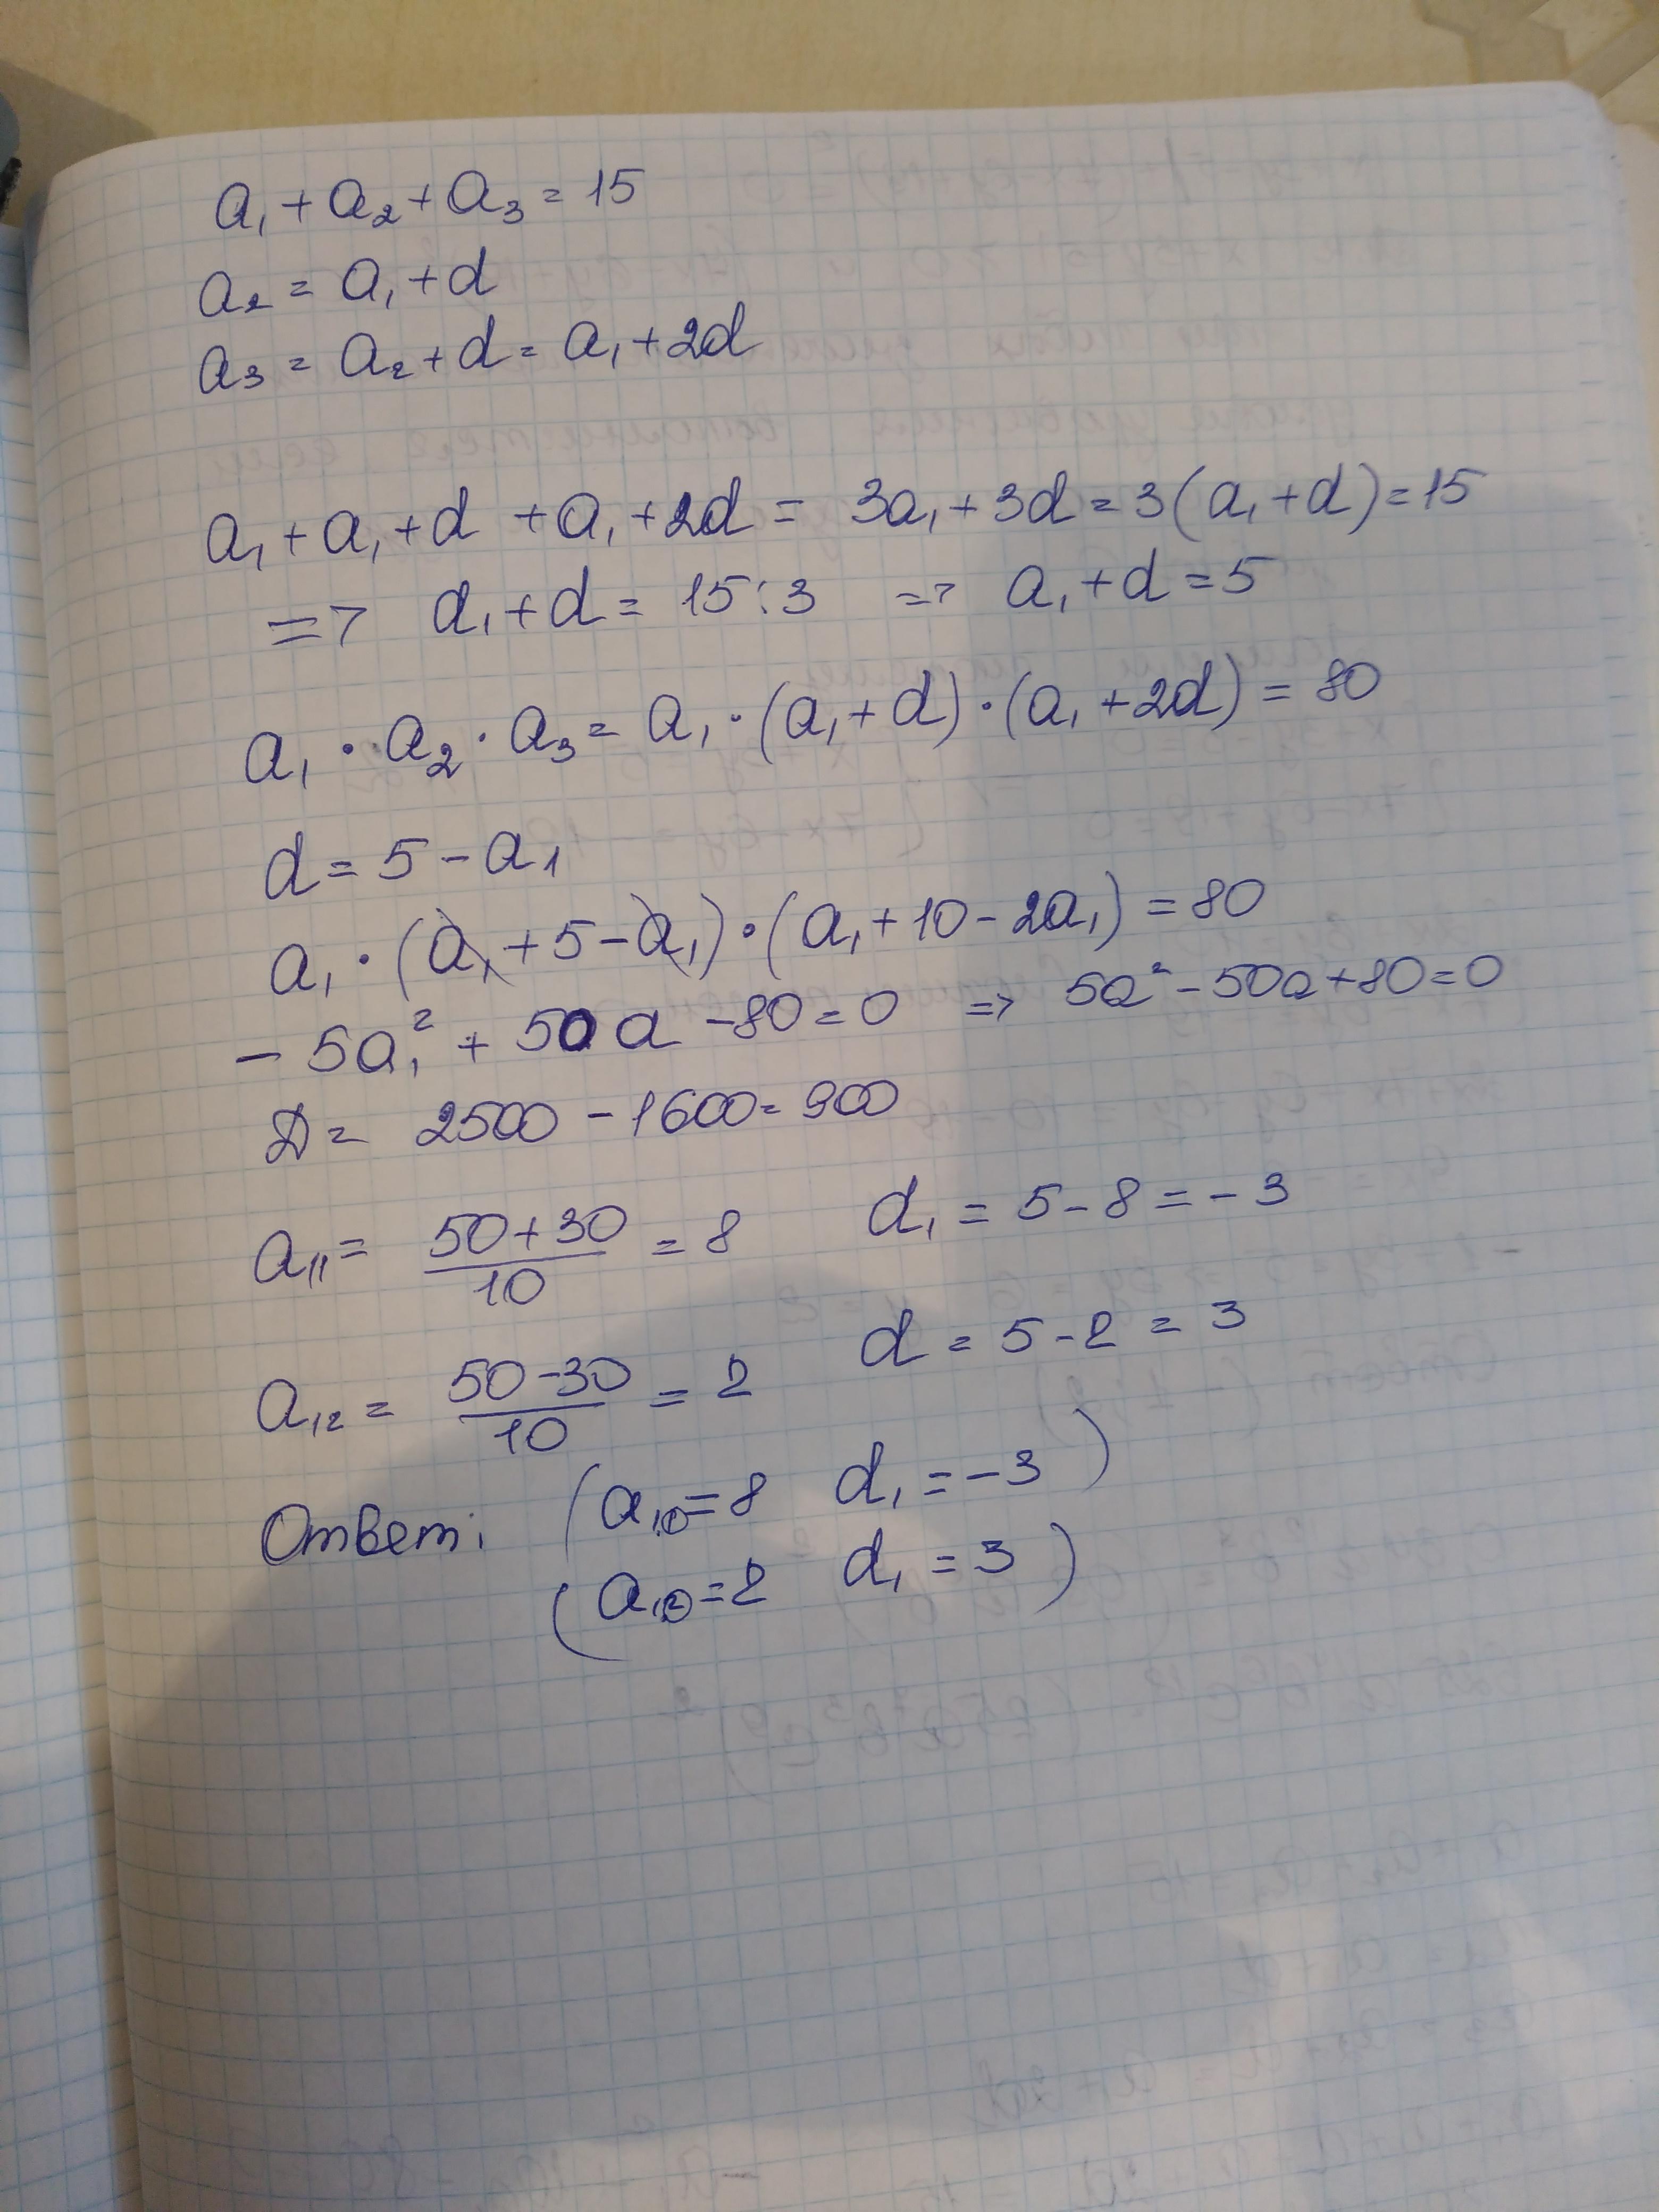 a₁ + a₂ + a₃ = 15
a₂ = a₁ + d
a₃ = a₂ + d = a₁ + 2d
a₁ + a₁ + d + a₁ + 2d = 3a₁ + 3d = 3(a₁ + d) = 15
=> d₁ + d = 15 : 3 => a₁ + d = 5
a₁ · a₂ · a₃ = a₁ · (a₁ + d) · (a₁ + 2d) = 80
d = 5 - a₁
a₁ · (a₁ + 5 - a₁) · (a₁ + 10 - 2a₁) = 80
- 5a₁² + 50a - 80 = 0 => 5a² - 50a + 80 = 0
D = 2500 - 1600 = 900
a₁₁ = (50 + 30)/10 = 8 d₁ = 5 - 8 = - 3
a₁₂ = (50 - 30)/10 = 2 d = 5 - 2 = 3
Ответ: (a₁₍₁₎ = 8 d₁ = - 3)
(a₁₍₂₎ = 2 d₁ = 3)